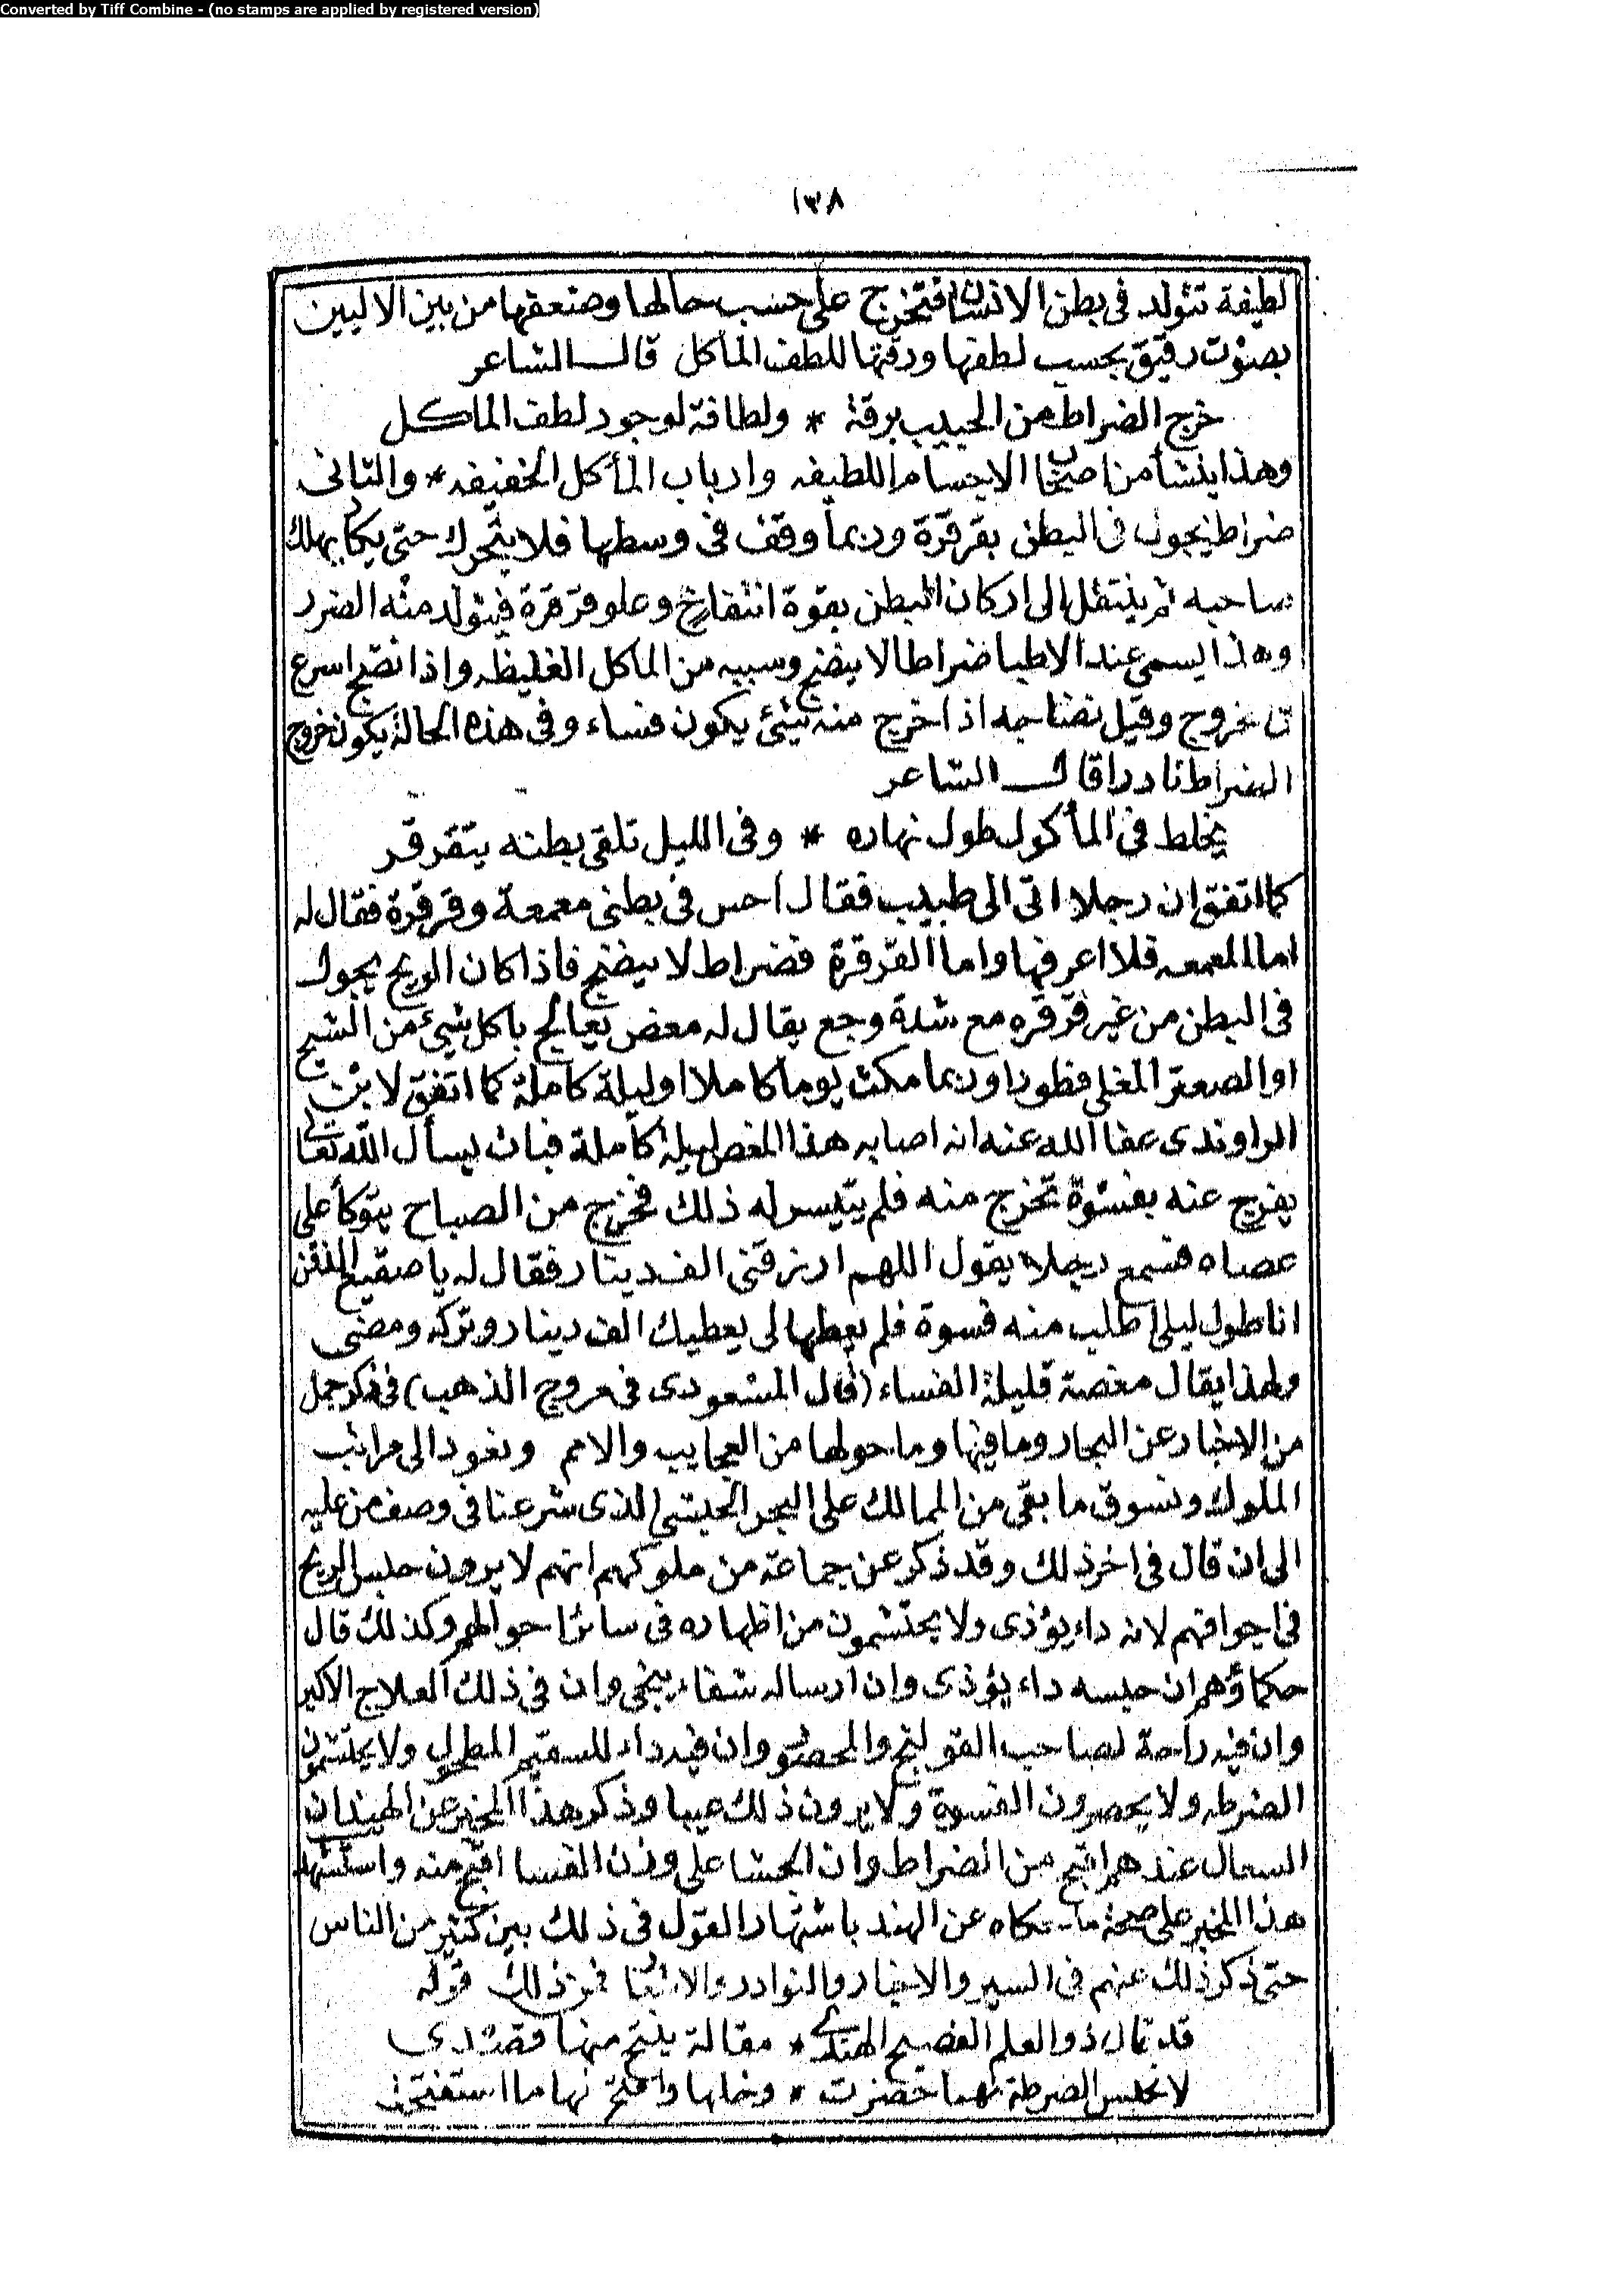 Converted by Tiff Combine - (no stamps are applied by registered version)
١٣٨
لطيفة تتولد فى بطن الانسان فتخرج على حسب حالها وضعفها من بين الاليين
بصوت رقيق بحسب لطفها ورقتها للطف المأكل قال الشاعر
خرج الضراط من الحبيب برقة * ولطافة لوجود لطف الماكل
وهذا ينشأ من اصحاب الاجسام اللطيفه وارباب المأكل الخفيفه * والثانى
ضراط يجول فى البطن بقرقرة وربما وقف فى وسطها فلا يتحرك حتى يكاد يهلك
صاحبه ثم ينتقل الى اركان البطن بقوة انتفاخ وعلو قرقرة فيتولد منه الضرر
وهذا يسمى عند الاطبا ضراطا لا ينضج وسببه من الماكل الغليظه واذا نضج اسرع
فى خروج وقيل نضاجه اذا خرج منه شئ يكون فساء وفى هذه الحالة يكون خروج
الضراط نادرا قال الشاعر
يخلط فى المأكول طول نهاره * وفى الليل تلقى بطنه يتقرقر
كما اتفق ان رجلا اتى الى طبيب فقال احس فى بطنى معمعة وقرقرة فقال له
اما المعمعه فلا اعرفها واما القرقرة فضراط لا ينضج فاذا كان الريح يجول
فى البطن من غير قرقره مع شدة وجع يقال له مغص يعالج باكل شئ من الشيح
او الصعتر المغلى فطورا وربما مكث يوما كاملا او ليلة كاملة كما اتفق لابن
الراوندى عفا الله عنه انه اصابه هذا المغص ليلة كاملة فبات يسأل الله تعالى
يفرج عنه بفسوة تخرج منه فلم يتيسر له ذلك فخرج من الصباح يتوكأ على
عصاه فسمع رجلا يقول اللهم ارزقنى الف دينار فقال له يا صقيع الذقن
انا طول ليلى اطلب منه فسوة فلم يعطها لى يعطيك الف دينار وتركه ومضى
ولهذا يقال مغصة قليلة الفساء (قال المسعودى فى مروج الذهب) فى ذكر جمل
من الاخبار عن البحار وما فيها وما حولها من العجايب والامم ونعود الى مراتب
الملوك ونسوق ما بقى من الممالك على البحر الحبشى الذى شرعنا فى وصف من عليه
الى ان قال فى اخر ذلك وقد ذكر عن جماعة من ملوكهم انهم لا يرون حبس الريح
فى اجوافهم لانه داء يؤذى ولا يحتشمون من اظهاره فى سائر احوالهم وكذلك قال
حكماؤهم ان حبسه داء يؤذى وان ارساله شفاء ينجى وان فى ذلك العلاج الاكبر
وان فيه راحة لصاحب القولنج والمحصور وان فيه داء للسقيم المطحول ولا يحتشمون
الضرطه ولا يحصرون الفسوة ولا يرون ذلك عيبا وذكر هذا المخبر عن الهند ان
السعال عندهم اقبح من الضراط وان الجشا على وزن الفسا اقبح منه واستشهد
هذا المخبر على صحة ما حكاه عن الهند باشتهار القول فى ذلك بين كثير من الناس
حتى ذكر ذلك عنهم فى السير والاخبار والنوادر والاشعار فمن ذلك قوله
قد قال ذو العلم الفصيح الهندى * مقالة ينتج منها قصدى
لا تحبس الضرطة مهما حضرت * وخلها وافتح لها ما استفتحت